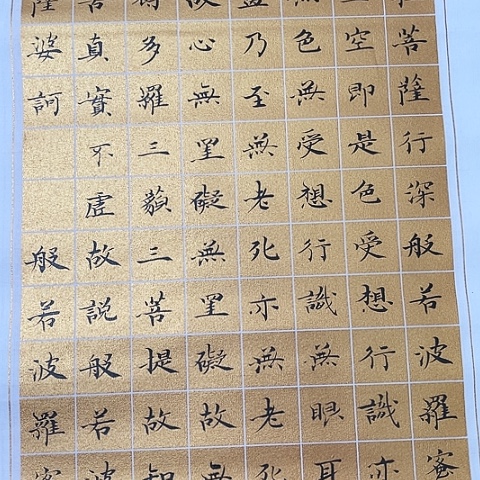 菩薩行深般若波羅蜜
空即是色受想行識亦
色無受想行識無眼耳
盡乃至無老死亦無老死
故心無罣礙無罣礙故無
多羅三藐三菩提故知
苦真實不虛故說般若波
薩婆訶 般若波羅蜜